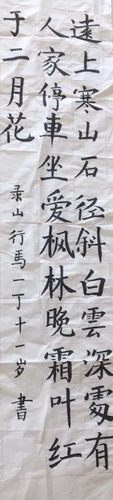 遠上寒山石径斜白雲深處有
人家停車坐爱枫林晚霜叶红
于二月花
录山行馬一丁十一岁書